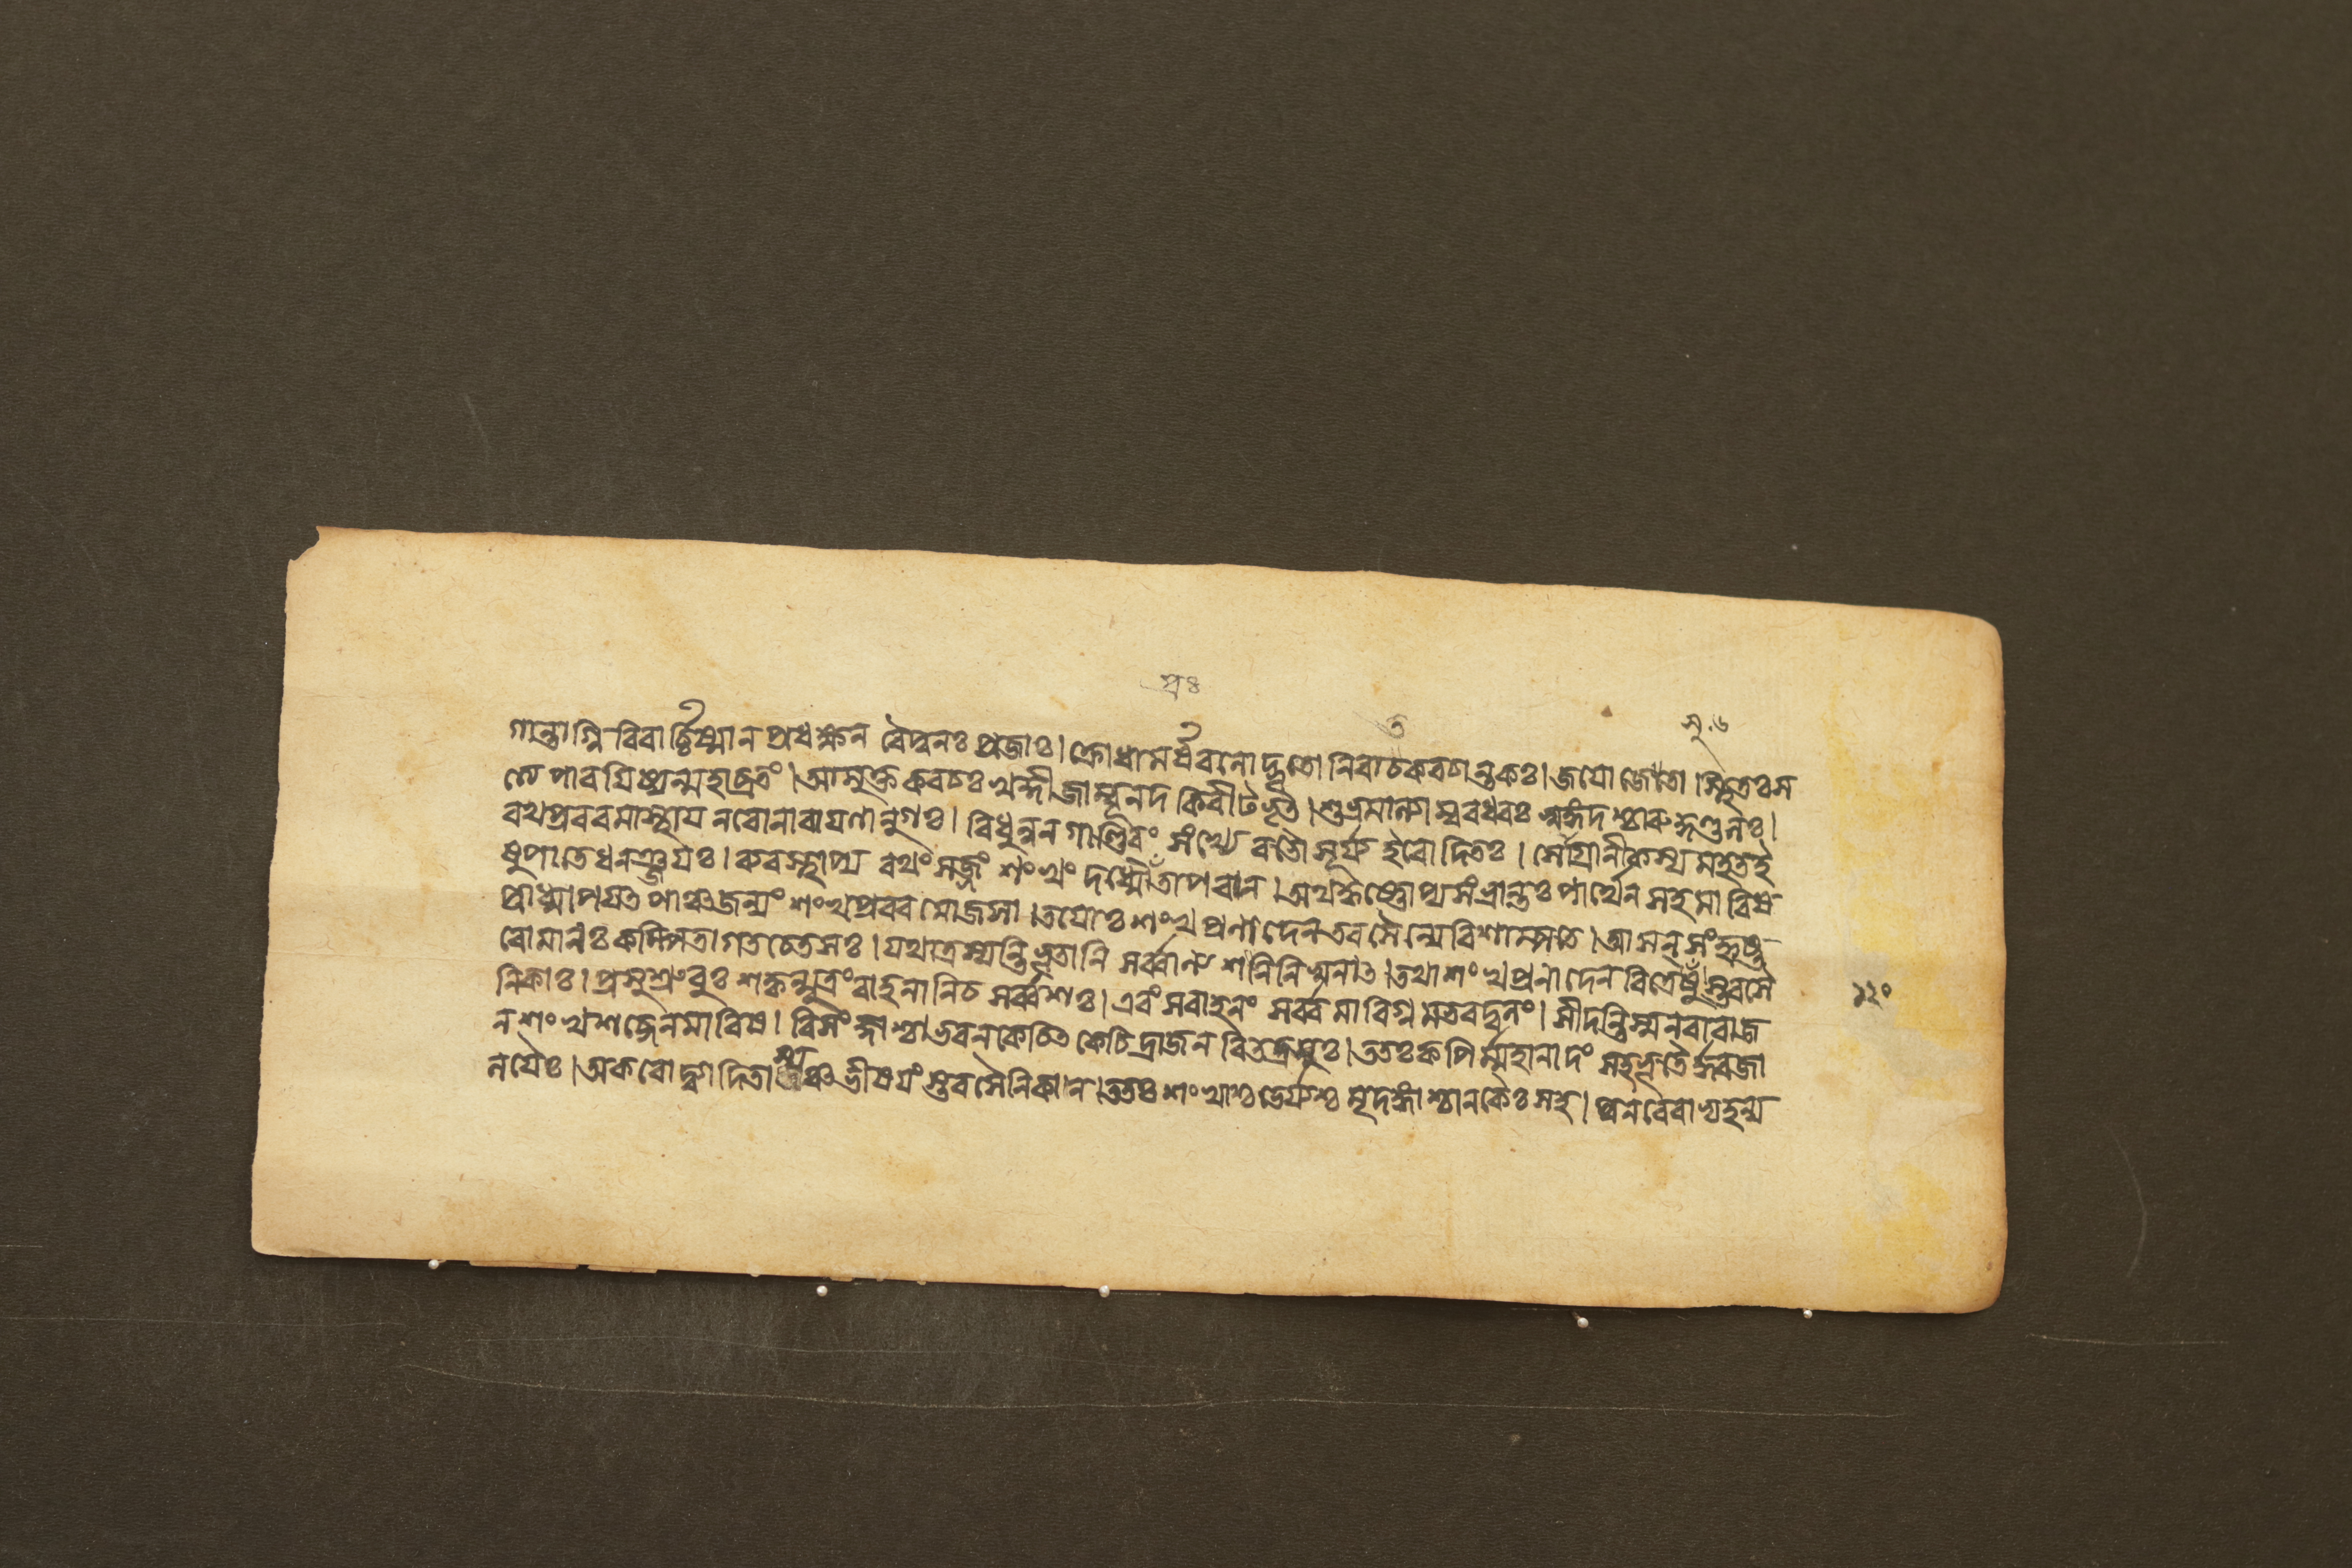 প্রঃ
ত
নৃ. ৬
গান্তাগ্নিরিবার্চ্চিষ্মান প্রধক্ষন বৈপুনঃ প্রজাঃ। ক্রোধামর্ষবলোদ্ধূতো নিবাতকবচান্তকঃ। জয়ো জেতা স্থিতঃ স
ত্যে পারয়িষ্যন্মহাব্রতং। আমুক্তকবচঃ খড়্গী জাম্বূনদ কিরীটভৃৎ। শুভ্রমাল্যাম্বরধরঃ স্বঙ্গদশ্চারুকুণ্ডলঃ।
রথপ্রবরমাস্থায নরোনারাযণানুগঃ। বিধুন্বন গাণ্ডিবং সংখ্যে বভৌ সূর্য্য ইবোদিতঃ। সোগ্রানীকস্য মহতই
ষুপাতে ধনঞ্জযঃ। ব্যবস্থাপ্য রথং সজ্জং শংখং দধ্মৌ প্রতাপবান। অথ কৃষ্ণোপ্যসংভ্রান্তঃ পার্থেন সহ মারিষ
প্রাধ্মাপযত পাঞ্চজন্যং শংখপ্রবরমোজসা। তযোঃ শংখপ্রণাদেন তব সৈন্যে বিশাম্পতে। আসন্ সংহৃষ্ট
রোমানঃ কম্পিতা গতচেতসঃ। যথা ত্রস্যন্তি ভূতানি সর্ব্বাণ্যশনিনিস্বনাৎ। তথা শংখপ্রনাদেন বিত্রেষুস্তব সৈ
নিকাঃ। প্রসুশ্রুবুঃ শকৃন্মুত্রং বাহনানিচ সর্ব্বশঃ। এবং সবাহনং সর্ব্বমাবিগ্নমভবদ্বলং। সীদন্তিস্ম নরা রাজ
ন শংখশব্দেন মারিষ। বিসংজ্ঞাশ্চাভবন কেচিৎ কেচিদ্রাজন বিতত্রসুঃ। ততঃ কপির্ম্মহানাদং সহ ভূতৈর্ধ্বজা
নযৈঃ। অকরোদ্ব্যাদিতাস্যশ্চ ভীষযংস্তব সৈনিকান। ততঃ শংখাশ্চ ভের্য্যশ্চ মৃদঙ্গাশ্চানকৈঃ সহ। পুনরেবাভ্যহন্য
১২০